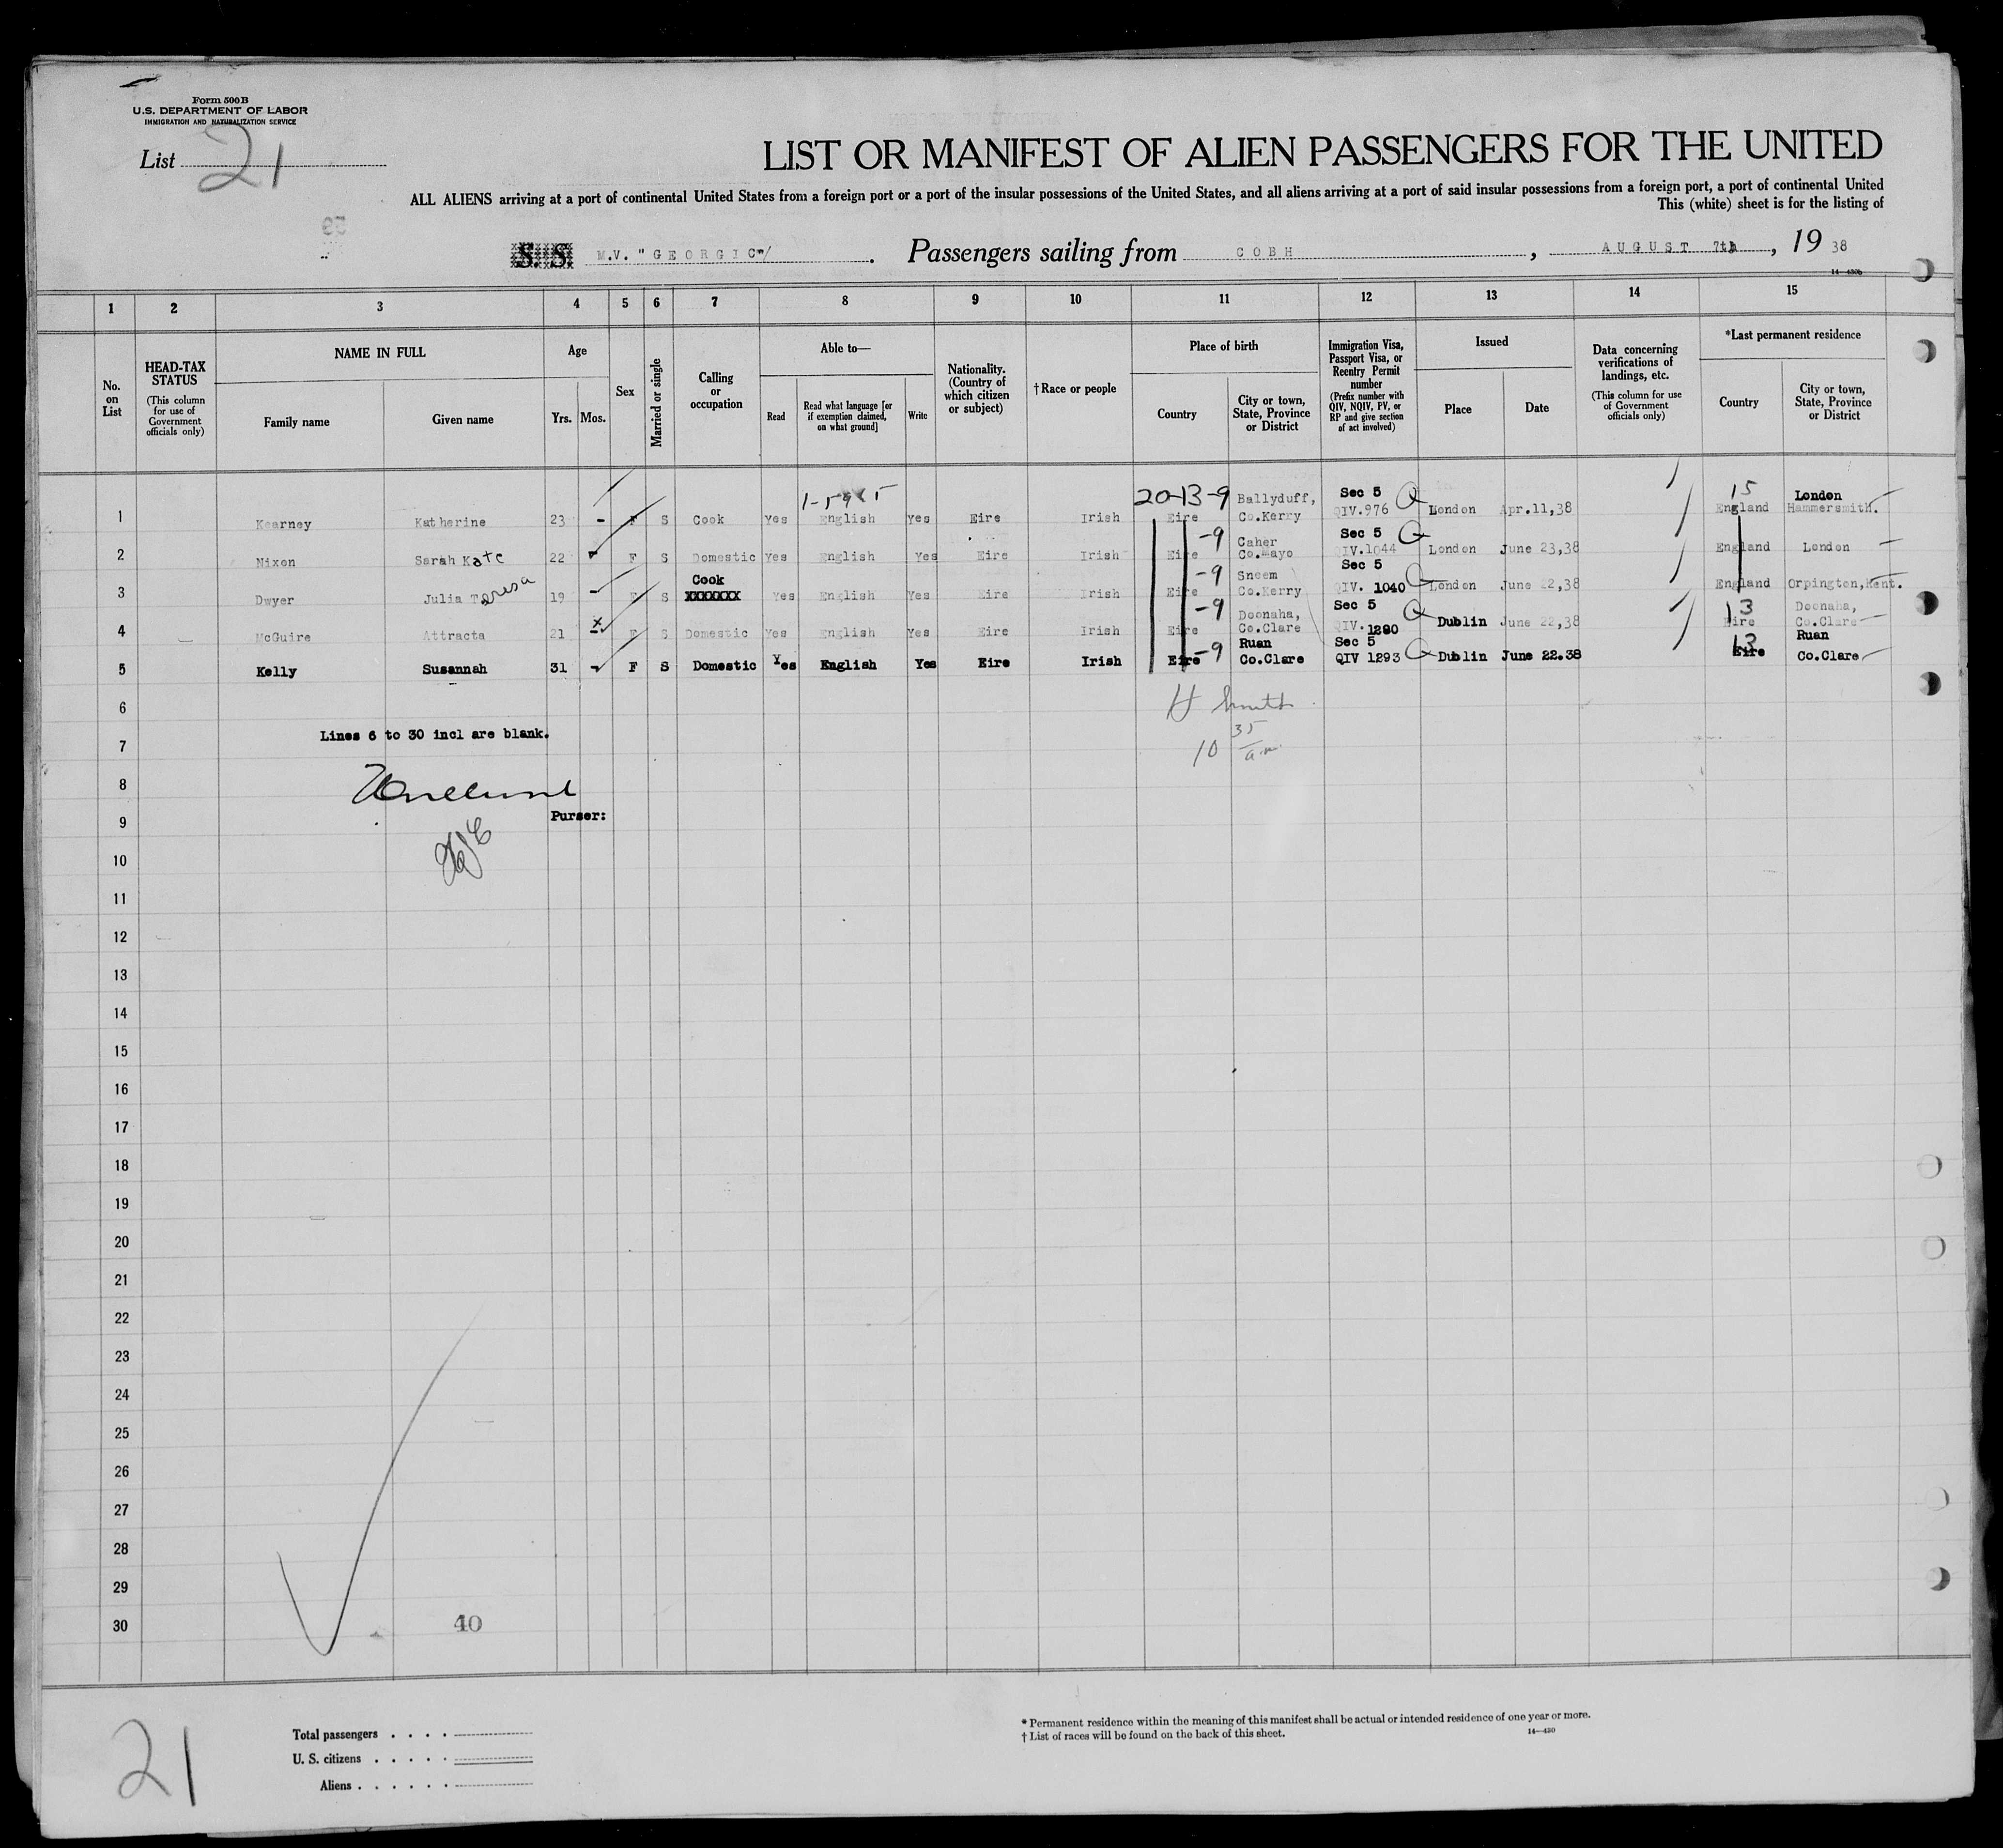 Form 500B
U.S. DEPARTMENT OF LABOR
IMMIGRATION AND NATURALIZATION SERVICE
List 21
LIST OR MANIFEST OF ALIEN PASSENGERS FOR THE UNITED
ALL ALIENS arriving at a port of continental United States from a foreign port or a port of the insular possessions of the United States, and all aliens arriving at a port of said insular possessions from a foreign port, a port of continental United
This (white) sheet is for the listing of
S. S. M.V. "GEORGIC" . Passengers sailing from COBH , AUGUST 7th , 19 38
1 2 3 4 5 6 7 8 9 10 11 12 13 14 15
No. on List
HEAD-TAX STATUS (This column for use of Government officials only)
NAME IN FULL
Family name
Given name
Age
Yrs. Mos.
Sex
Married or single
Calling or occupation
Able to—
Read
Read what language [or if exemption claimed, on what ground]
Write
Nationality. (Country of which citizen or subject)
†Race or people
Place of birth
Country
City or town, State, Province or District
Immigration Visa, Passport Visa, or Reentry Permit number (Prefix number with QIV, NQIV, PV, or RP and give section of act involved)
Issued
Place
Date
Data concerning verifications of landings, etc. (This column for use of Government officials only)
*Last permanent residence
Country
City or town, State, Province or District
20-13-9 Ballyduff, Sec 5 15 London
1 Kearney Katherine 23 - F S Cook Yes English Yes Eire Irish Eire Co.Kerry QIV.976 London Apr.11,38 England Hammersmith.
-9 Caher Sec 5
2 Nixon Sarah Kate 22 F S Domestic Yes English Yes Eire Irish Eire Co.Mayo QIV.1044 London June 23,38 England London
Cook -9 Sneem Sec 5
3 Dwyer Julia Teresa 19 F S XXXXXXX Yes English Yes Eire Irish Eire Co.Kerry QIV. 1040 London June 22,38 England Orpington,Kent.
-9 Doonaha, Sec 5 13 Doonaha,
4 McGuire Attracta 21 F S Domestic Yes English Yes Eire Irish Eire Co.Clare QIV.1280 Dublin June 22,38 Eire Co.Clare
-9 Ruan Sec 5 13 Ruan
5 Kelly Susannah 31 F S Domestic Yes English Yes Eire Irish Eire Co.Clare QIV 1293 Dublin June 22.38 Eire Co.Clare
6 H Smith
Lines 6 to 30 incl are blank.
7 10 35 a.m.
8
Purser:
9
10
11
12
13
14
15
16
17
18
19
20
21
22
23
24
25
26
27
28
29
30 40
21
Total passengers . . . .
U. S. citizens . . . . .
Aliens . . . . . .
* Permanent residence within the meaning of this manifest shall be actual or intended residence of one year or more.
† List of races will be found on the back of this sheet.
14—430